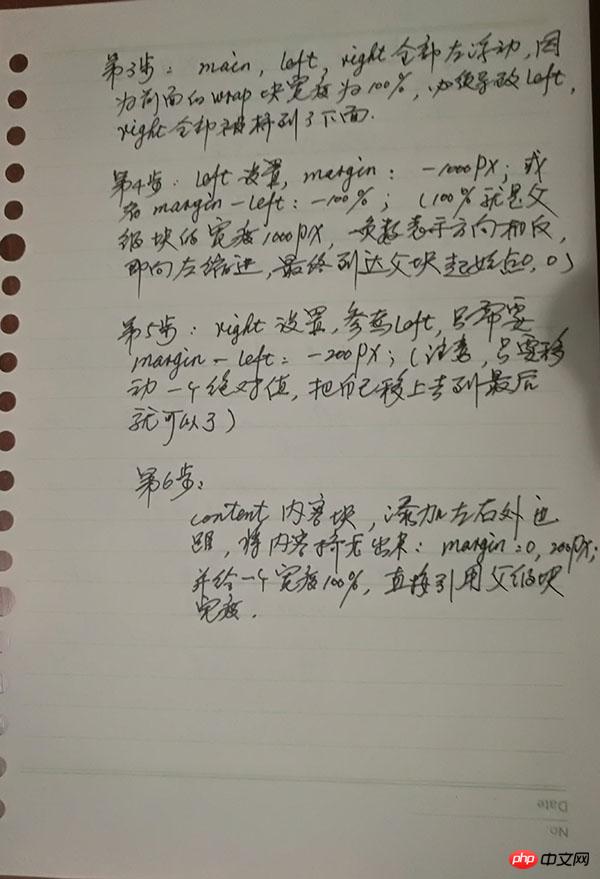 第3步：main，left，right全部左浮动，因
为前面的wrap块宽度为100%，必须导致left，
right全部被挤到了下面.
第4步：left设置，margin：-1000px；或
者margin-left：-100%；（100%就是父
级块的宽度1000px，负数表示方向相反，
即向左缩进，最终到达父块起始点0，0）
第5步：right设置，参考left，只需要
margin-left：-200px；（注意，只要移
动一个绝对值，把自己移上去到最后
就可以了）
第6步：
content内容块，添加左右外边
距，将内容挤出来：margin：0，200px；
并给一个宽度100%，直接引用父级块
宽度.
Date
No.
php 中文网